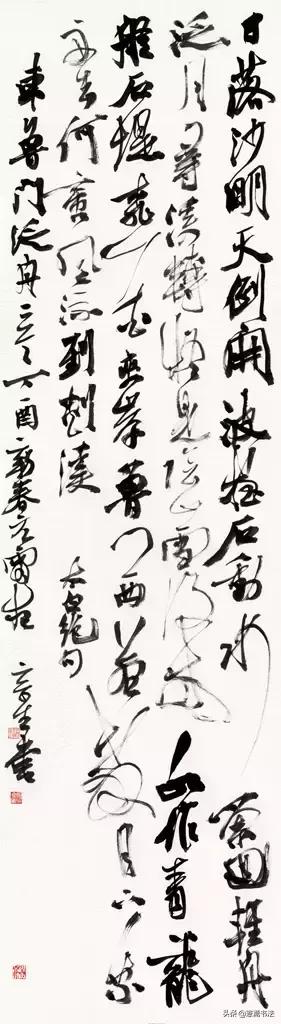 日落沙明天倒開波摇石動水萦回輕舟
泛月尋溪轉疑見陰山雪後来水作青龍
盤石堤桃花夾岸魯門西若教月下乘
舟去何啻風流到剡溪 太白絶句
東魯門泛舟二首丁酉新春 書
头条@
书法